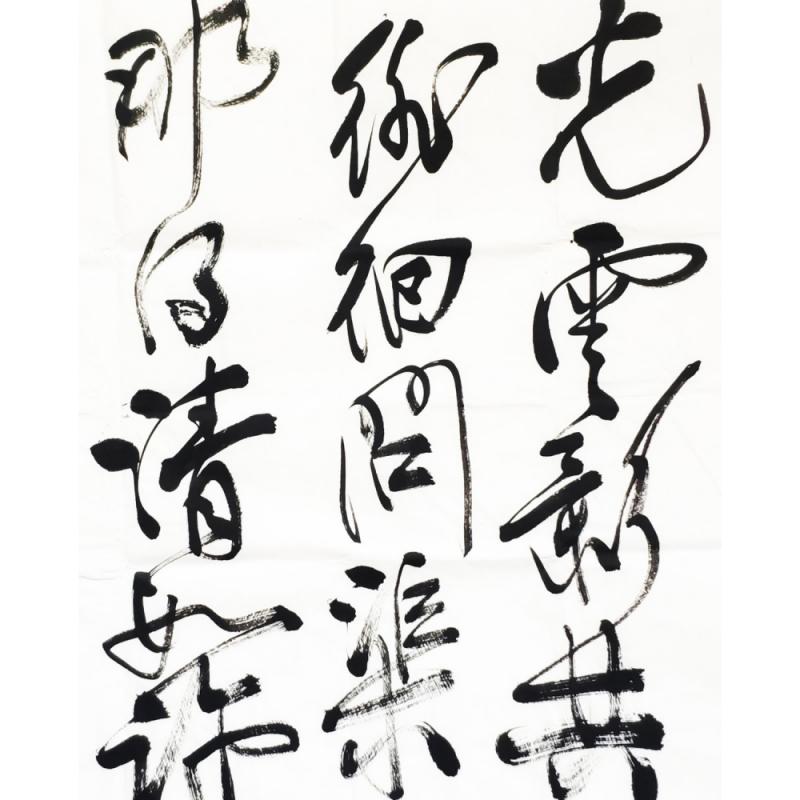 光雲影共
徘徊問渠
那得清如許